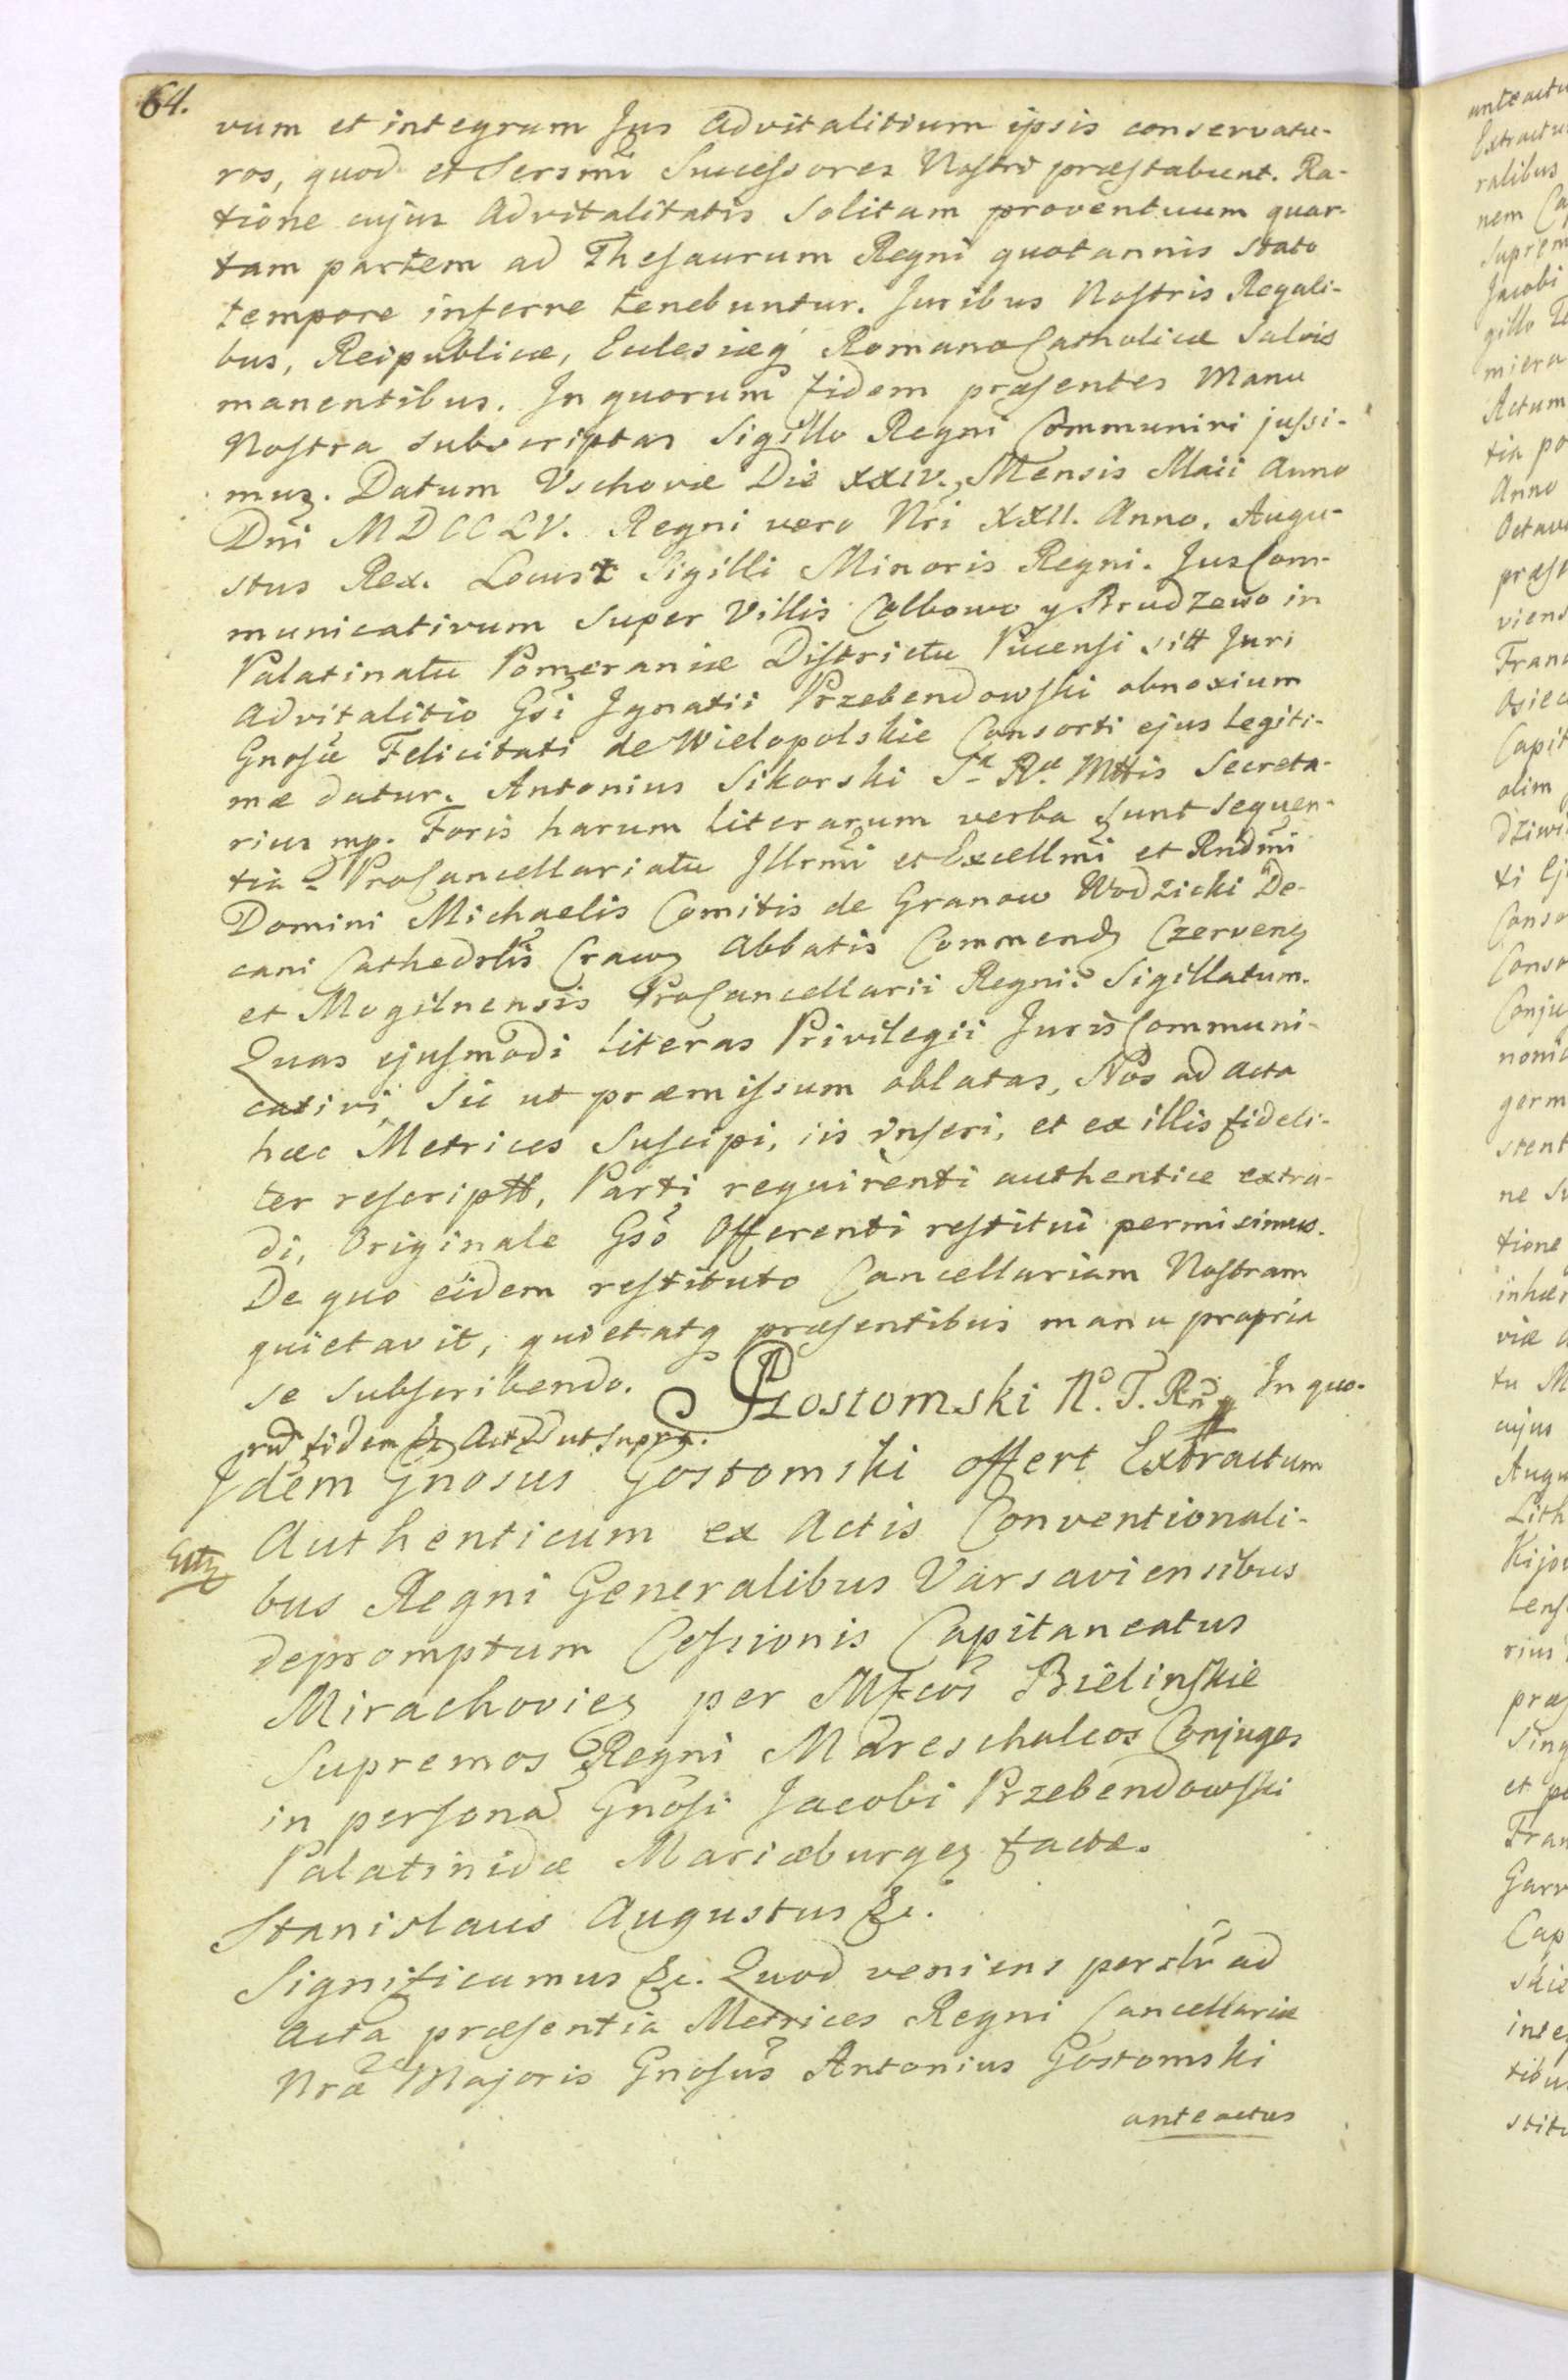 64.
vum et integrum Jus Advitalitium ipsis conservatu-
ros, quod et Sersmi Successores Nostri præstabunt. Ra-
tione cujus Advitalitatis Solitam proventuum quar-
tam partem ad Thesaurum Regni quotannis stato
tempore inferre tenebuntur. Juribus Nostris Regali-
bus, Reipublicæ, Eclesiæq Romano Catholicæ Salvis
manentibus. In quorum fidem præsentes Manu
Nostra subscriptas Sigillo Regni Communiri jussi-
mus. Datum Vschovæ Die XXIV. Mensis Maii Anno
Dni MDCCLV. Regni vero Nri XXII. Anno. Augu-
stus Rex. Locus Sigilli Minoris Regni. Jus Com-
municativum Super Villis Celbowo y Brudzewo in
Palatinatu Pomeraniæ Districtu Pucensi sitt Juri
Advitalitio Gsi Ignatii Przebendowski obnoxium
Gnosæ Felicitati de Wielopolskie Consorti ejus legiti-
mæ datur. Antonius Sikorski Sæ Ræ Mttis Secreta-
rius mp. Foris harum literarum verba sunt sequen-
tia ProCancellariatu Illrmi et Excellmi et Rndmi
Domini Michaelis Comitis de Granow Wodzicki De-
cani Cathedrlis Cracv Abbatis Commend Czerven
et Mogilnensis ProCancellarii Regni Sigillatum.
Quas ejusmodi literas Privilegii Juris Communi-
cativi, Sic ut præmissum oblatas, Nos ad acta
hæc Metrices Suscipi, iis inseri, et ex illis fideli-
ter rescriptt, Parti requirenti authentice extra-
di, Originale Gso Offerenti restitui permisimus.
De quo eidem restituto Cancellariam Nostram
quietavit, quietatq præsentibus manu propria
se subscribendo. Gostomski N. T. Rnd In quo-
rum fidem &c Act Dut supra.
Idem Gnosus Gostomski offert Extractum
Authenticum ex Actis Conventionali-
bus Regni Generalibus Varsaviensibus
depromptum Cessionis Capitaneatus
Mirachovien per Mfcos Bielinskie
Supremos Regni Mareschalcos Conjuges
in persona Gnosi Jacobi Przebendowski
Palatinidæ Mariæburgen factæ.
Stanislaus Augustus &c.
Significamus &c. Quod veniens personlr ad
Acta præsentia Metrices Regni Cancellariæ
Nræ Majoris Gnosus Antonius Gostomski
anteactus